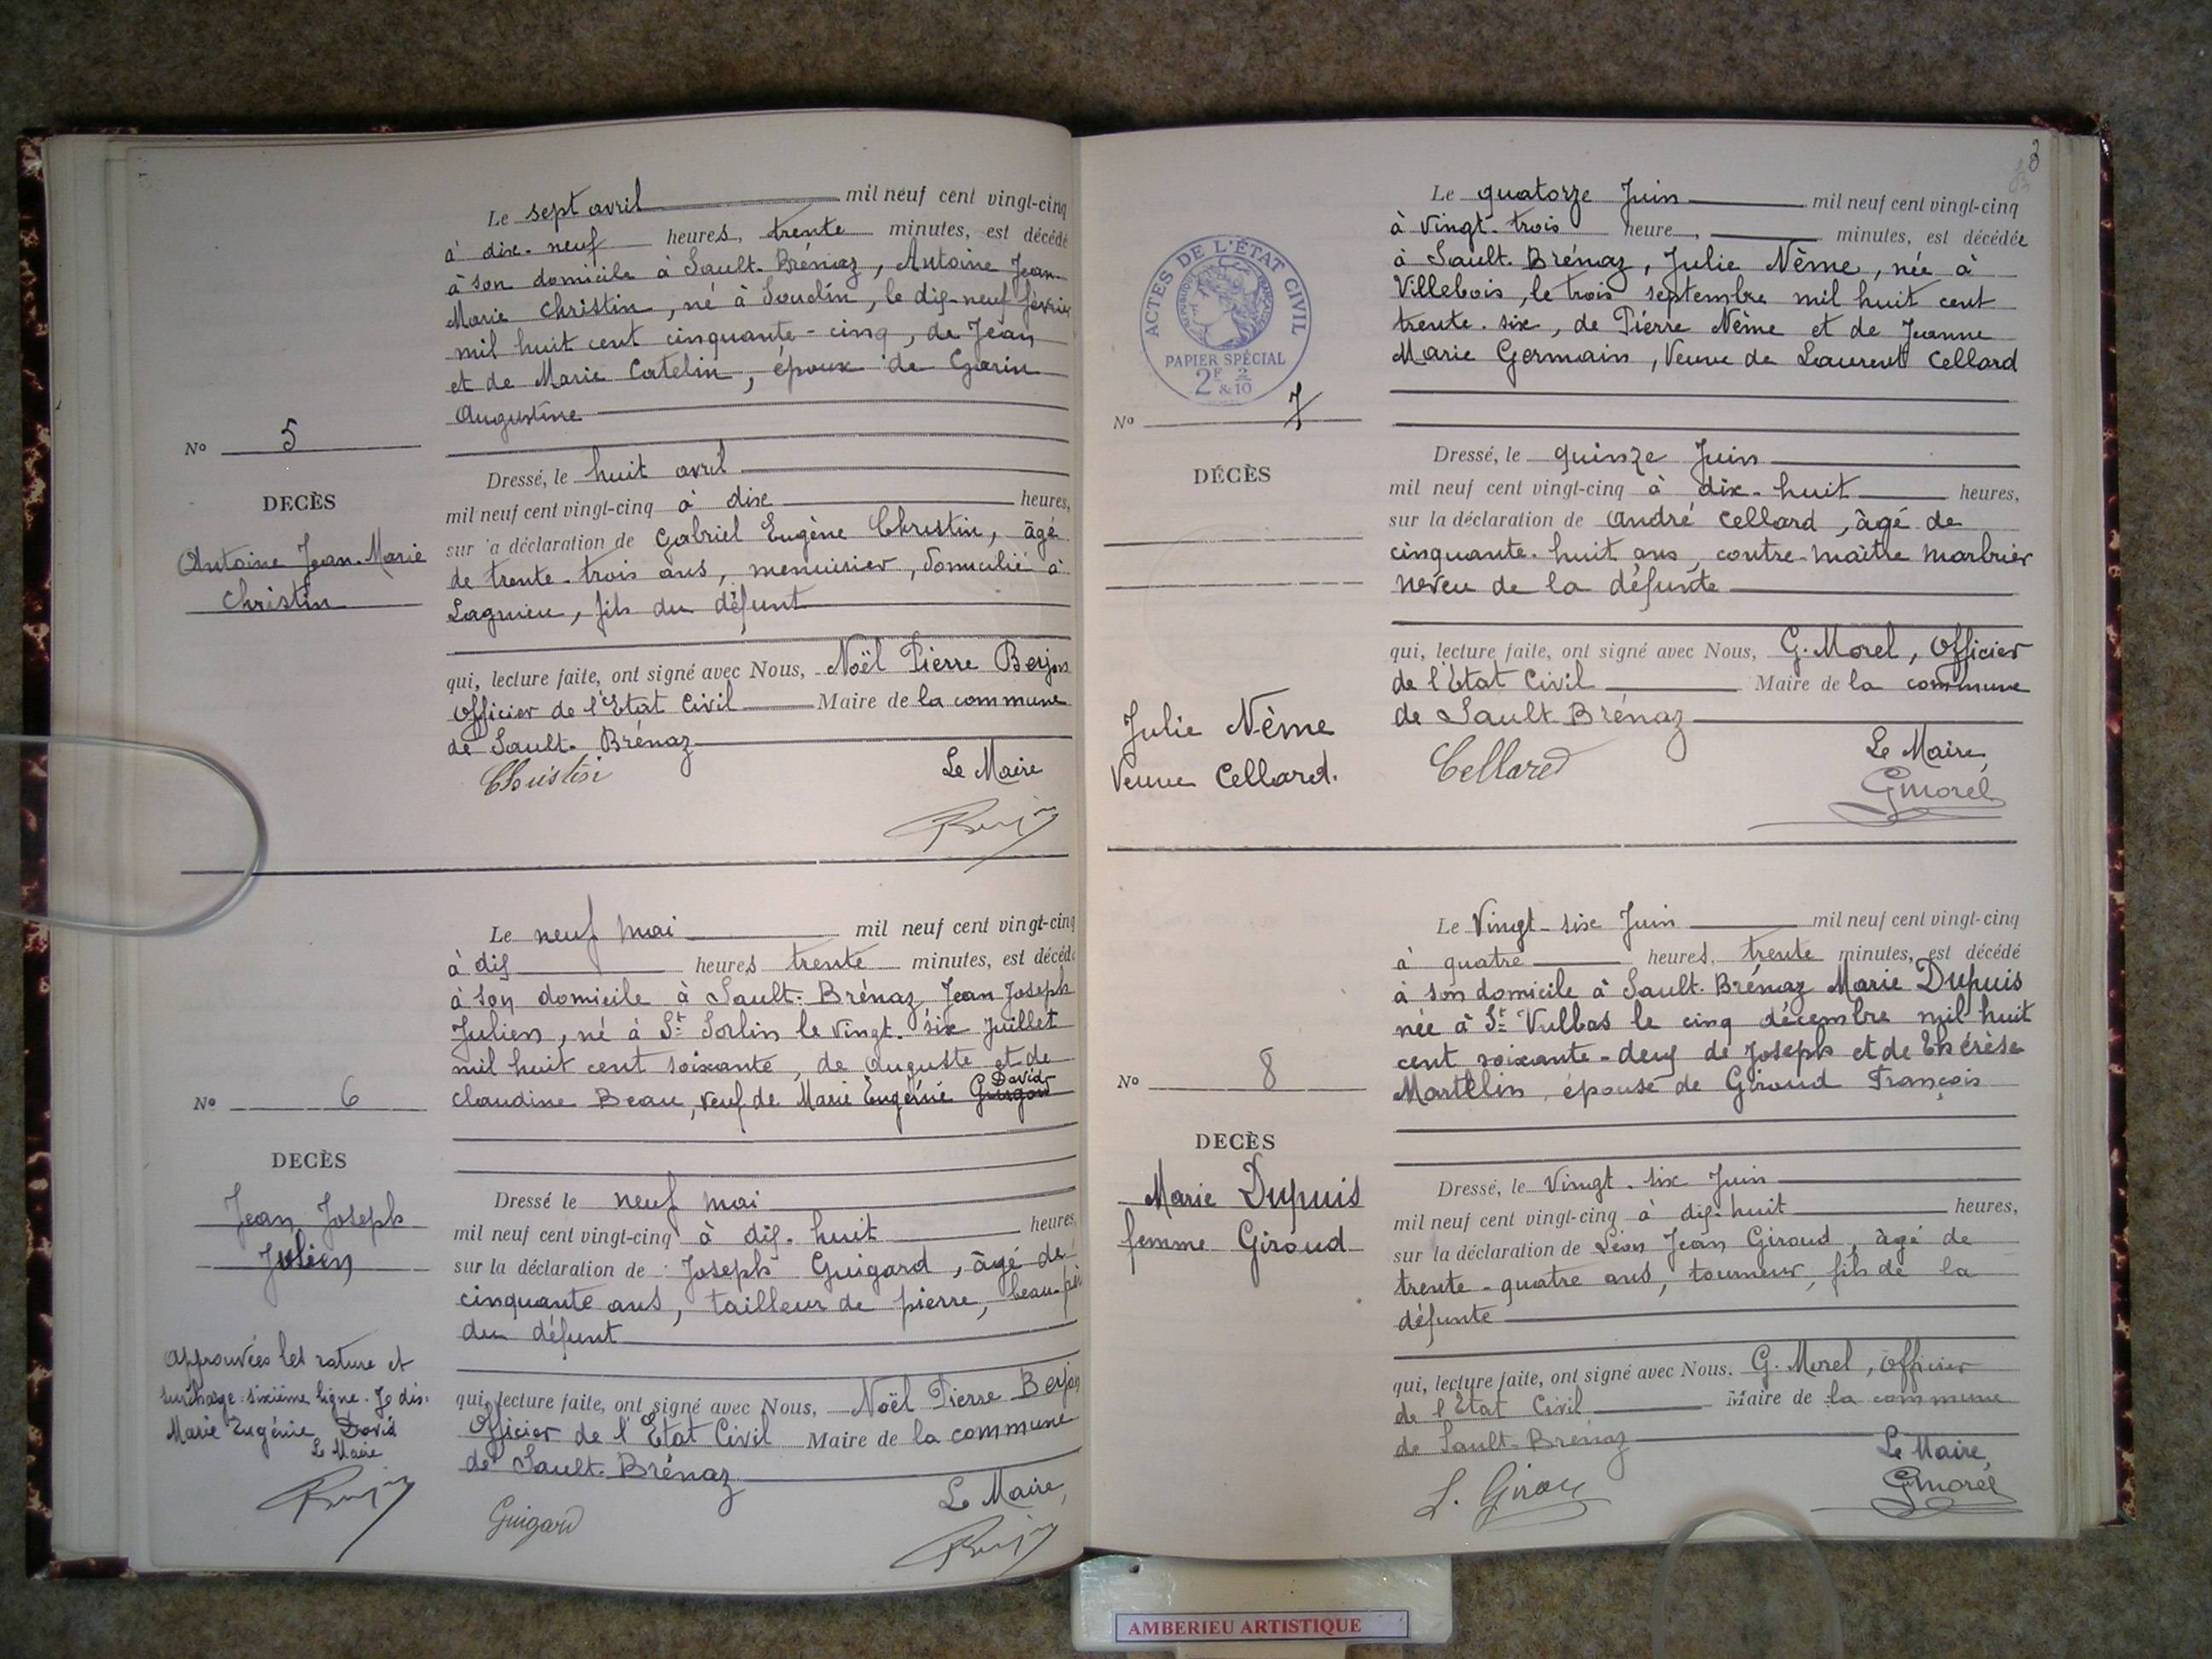 Le sept avril mil neuf cent vingt-cinq
à dix-neuf heures, trente minutes, est décédé
à son domicile à Sault-Brénaz, Antoine Jean-
Marie Christin, né à Soudin, le dix-neuf février
mil huit cent cinquante-cinq, de Jean
et de Marie Catelin, époux de Garin
Augustine
No 5
DECÈS
Antoine Jean-Marie
Christin
Dressé, le huit avril
mil neuf cent vingt-cinq à dix heures,
sur la déclaration de Gabriel Eugène Christin, âgé
de trente-trois ans, menuisier, domicilié à
Lagnieu, fils du défunt
qui, lecture faite, ont signé avec Nous, Noël Pierre Berjon
Officier de l'Etat Civil Maire de la commune
de Sault-Brénaz
Christin Le Maire
Le neuf mai mil neuf cent vingt-cinq
à dix heures trente minutes, est décédé
à son domicile à Sault-Brénaz Jean Joseph
Julien, né à St Sorlin le vingt-six Juillet
mil huit cent soixante, de Auguste et de
David
claudine Beau, veuf de Marie Eugénie
No 6
DECÈS
Jean Joseph
Julien
Dressé le neuf mai
mil neuf cent vingt-cinq à dix-huit heures
sur la déclaration de Joseph Guigard, âgé de
cinquante ans, tailleur de pierre, beau-
du défunt
qui, lecture faite, ont signé avec Nous, Noël Pierre Berjon
Officier de l'Etat Civil Maire de la commune
de Sault-Brénaz
Guigard Le Maire,
Approuvées les rature et
surcharge sixième ligne. Je dis:
Marie Eugénie David
Le Maire
3
Le quatorze Juin mil neuf cent vingt-cinq
à vingt-trois heure, minutes, est décédée
à Sault-Brénaz, Julie Nême, née à
Villebois, le trois septembre mil huit cent
trente-six, de Pierre Nême et de Jeanne
Marie Germain, Veuve de Laurent Cellard
ACTES DE L'ÉTAT CIVIL
PAPIER SPÉCIAL
2F 2
& 10
No 7
DÉCÈS
Julie Nême
Veuve Cellard.
Dressé, le quinze Juin
mil neuf cent vingt-cinq à dix-huit heures,
sur la déclaration de André Cellard, âgé de
cinquante-huit ans, contre-maître marbrier
neveu de la défunte
qui, lecture faite, ont signé avec Nous, G. Morel, Officier
de l'Etat Civil Maire de la commune
de Sault Brénaz
Cellard Le Maire,
GMorel
Le Vingt-six Juin mil neuf cent vingt-cinq
à quatre heures, trente minutes, est décédé
à son domicile à Sault-Brénaz Marie Dupuis
née à St Vulbas le cinq décembre mil huit
cent soixante-deux de Joseph et de Thérèse
Martelin, épouse de Giroud François
No 8
DECÈS
Marie Dupuis
femme Giroud
Dressé, le Vingt-six Juin
mil neuf cent vingt-cinq à dix-huit heures,
sur la déclaration de Léon Jean Giroud, âgé de
trente-quatre ans, tourneur, fils de la
défunte
qui, lecture faite, ont signé avec Nous, G. Morel, Officier
de l'Etat Civil Maire de la commune
de Sault-Brénaz
Le Maire,
GMorel
AMBERIEU ARTISTIQUE